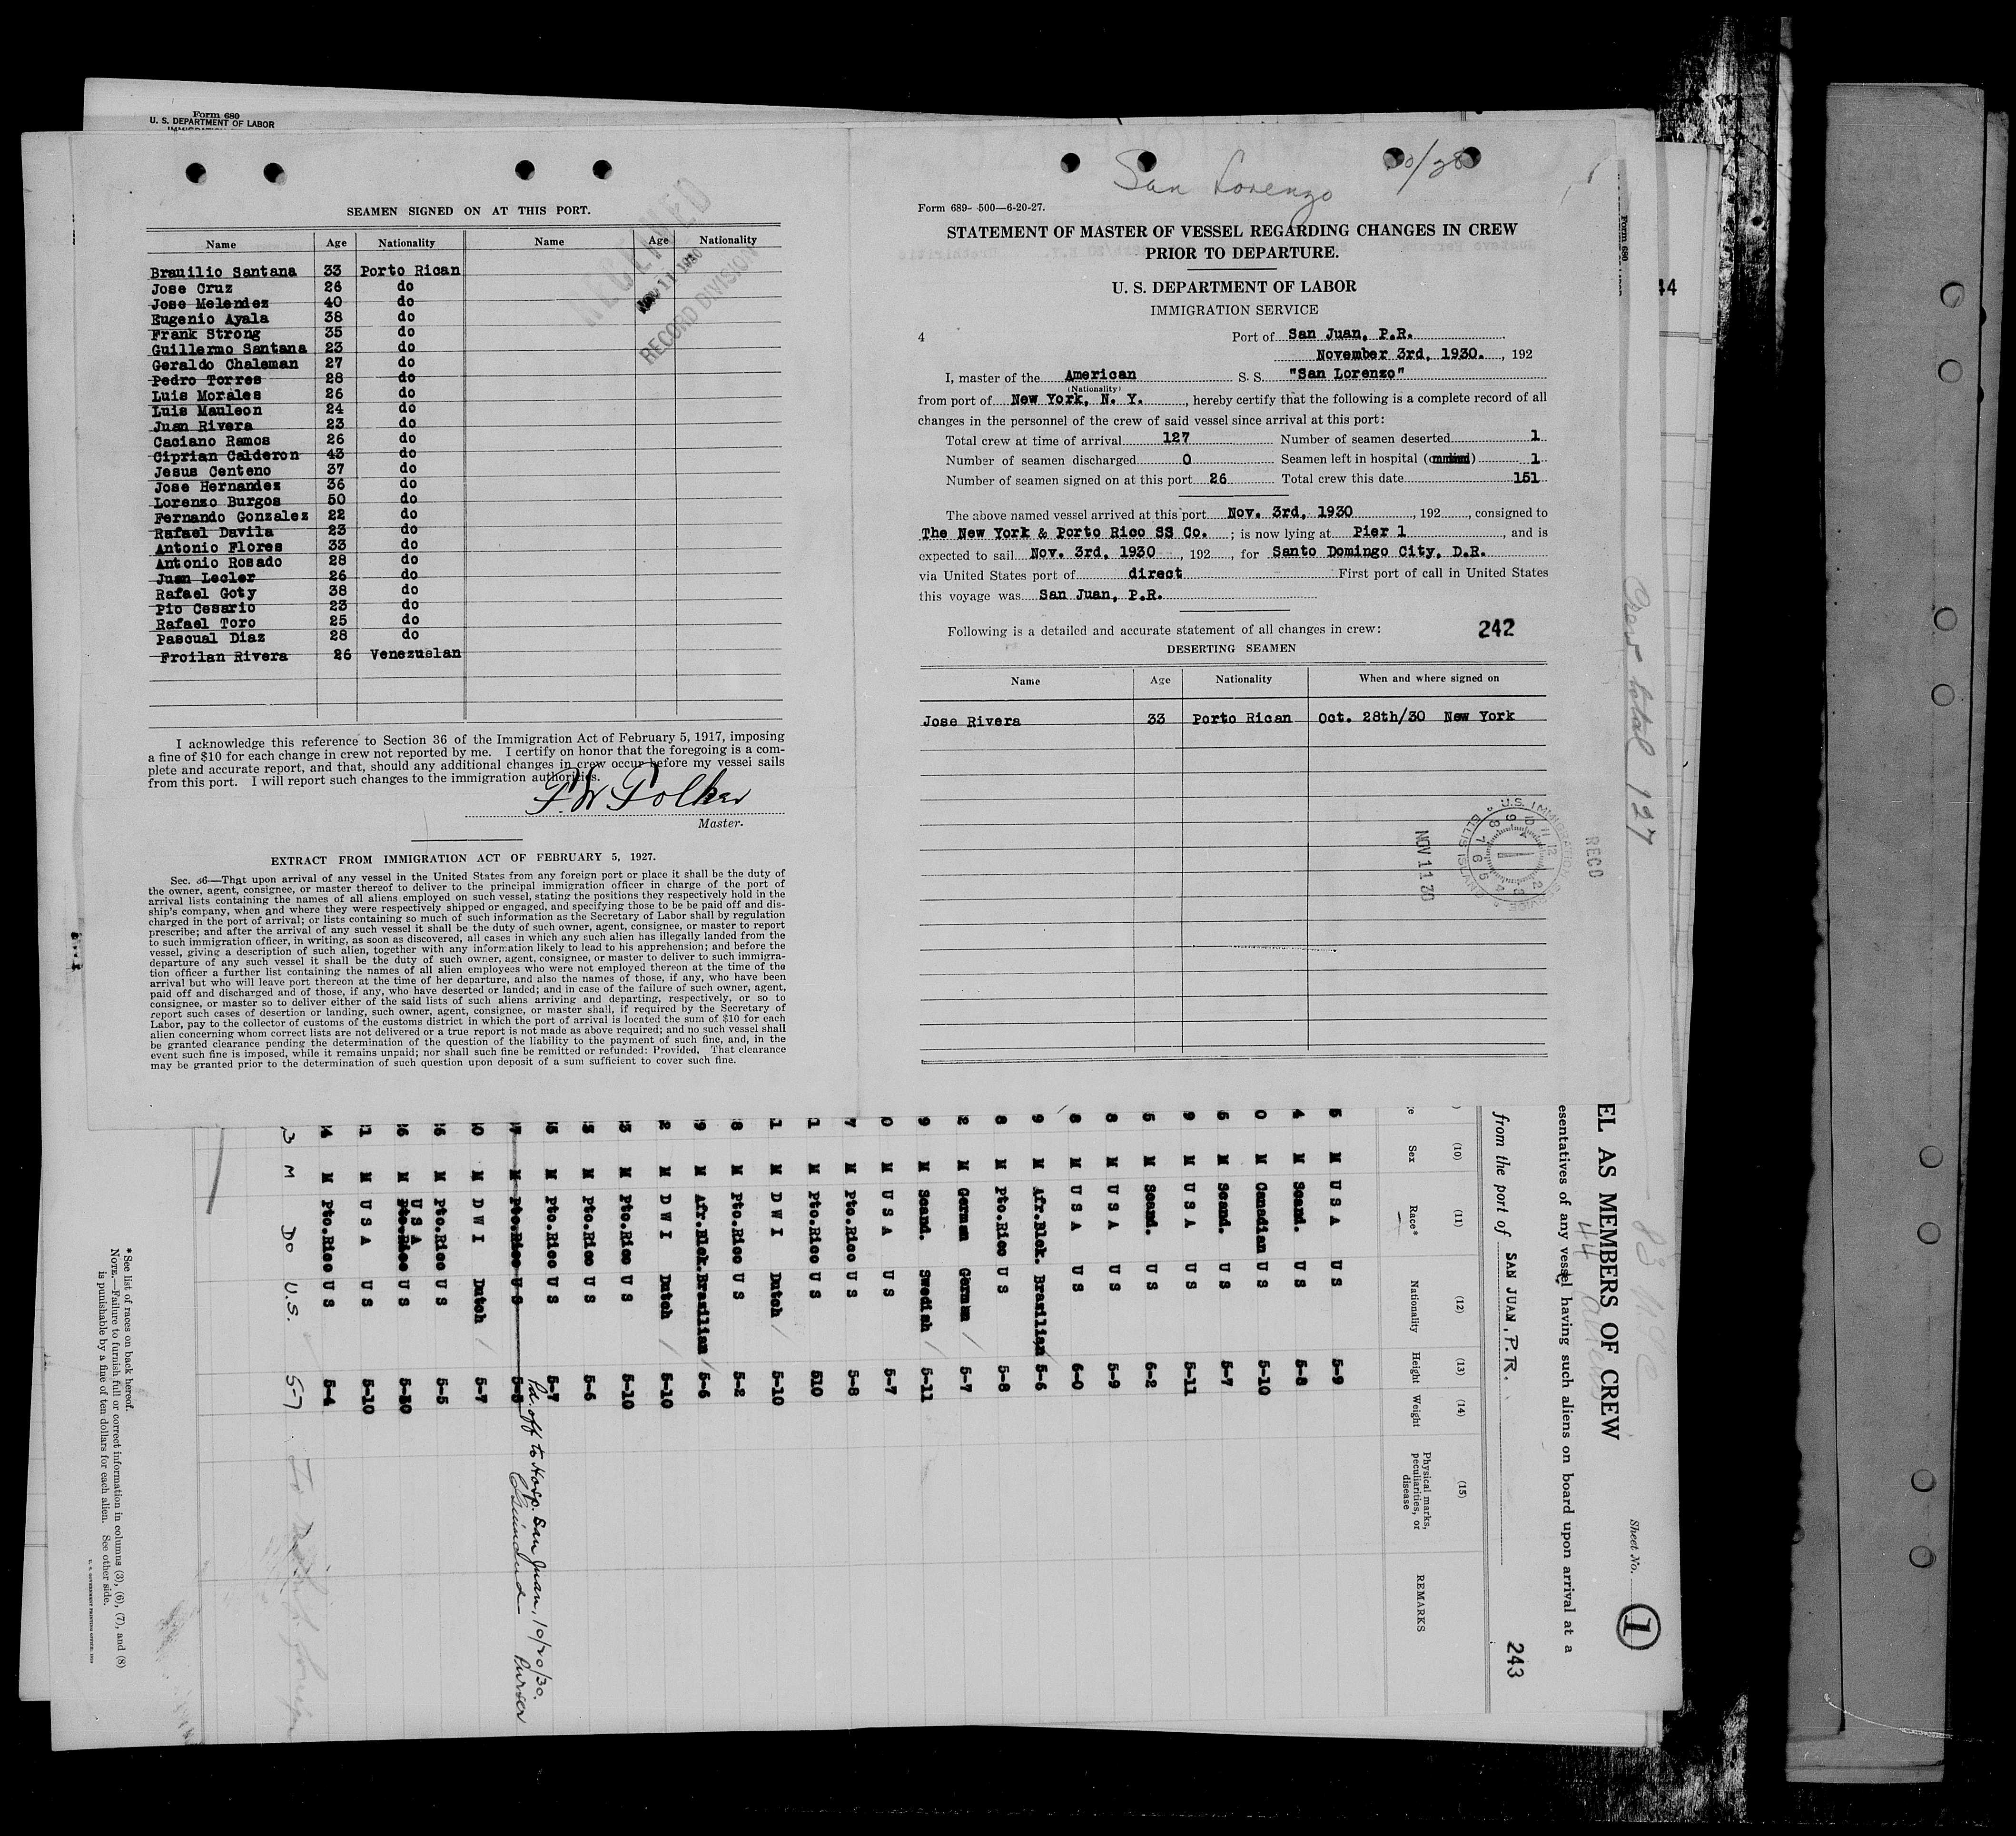 Form 680
U. S. DEPARTMENT OF LABOR
SEAMEN SIGNED ON AT THIS PORT.
Name Age Nationality Name Age Nationality
Brauilio Santana 33 Porto Rican
Jose Cruz 26 do
Jose Melendez 40 do
Eugenio Ayala 38 do
Frank Strong 35 do
Guillermo Santana 23 do
Geraldo Chaleman 27 do
Pedro Torres 28 do
Luis Morales 26 do
Luis Mauleon 24 do
Juan Rivera 23 do
Caciano Ramos 26 do
Ciprian Calderon 43 do
Jesus Centeno 37 do
Jose Hernandez 36 do
Lorenzo Burgos 50 do
Fernando Gonzalez 22 do
Rafael Davila 23 do
Antonio Flores 33 do
Antonio Rosado 28 do
Juan Lecler 26 do
Rafael Goty 38 do
Pio Cesario 23 do
Rafael Toro 25 do
Pascual Diaz 28 do
Froilan Rivera 26 Venezuelan
RECEIVED
NOV 11 1930
RECORD DIVISION
I acknowledge this reference to Section 36 of the Immigration Act of February 5, 1917, imposing
a fine of $10 for each change in crew not reported by me. I certify on honor that the foregoing is a com-
plete and accurate report, and that, should any additional changes in crew occur before my vessel sails
from this port. I will report such changes to the immigration authorities.
Master.
EXTRACT FROM IMMIGRATION ACT OF FEBRUARY 5, 1927.
Sec. 36—That upon arrival of any vessel in the United States from any foreign port or place it shall be the duty of
the owner, agent, consignee, or master thereof to deliver to the principal immigration officer in charge of the port of
arrival lists containing the names of all aliens employed on such vessel, stating the positions they respectively hold in the
ship's company, when and where they were respectively shipped or engaged, and specifying those to be be paid off and dis-
charged in the port of arrival; or lists containing so much of such information as the Secretary of Labor shall by regulation
prescribe; and after the arrival of any such vessel it shall be the duty of such owner, agent, consignee, or master to report
to such immigration officer, in writing, as soon as discovered, all cases in which any such alien has illegally landed from the
vessel, giving a description of such alien, together with any information likely to lead to his apprehension; and before the
departure of any such vessel it shall be the duty of such owner, agent, consignee, or master to deliver to such immigra-
tion officer a further list containing the names of all alien employees who were not employed thereon at the time of the
arrival but who will leave port thereon at the time of her departure, and also the names of those, if any, who have been
paid off and discharged and of those, if any, who have deserted or landed; and in case of the failure of such owner, agent,
consignee, or master so to deliver either of the said lists of such aliens arriving and departing, respectively, or so to
report such cases of desertion or landing, such owner, agent, consignee, or master shall, if required by the Secretary of
Labor, pay to the collector of customs of the customs district in which the port of arrival is located the sum of $10 for each
alien concerning whom correct lists are not delivered or a true report is not made as above required; and no such vessel shall
be granted clearance pending the determination of the question of the liability to the payment of such fine, and, in the
event such fine is imposed, while it remains unpaid; nor shall such fine be remitted or refunded: Provided, That clearance
may be granted prior to the determination of such question upon deposit of a sum sufficient to cover such fine.
San Lorenzo
Form 689- 500—6-20-27.
STATEMENT OF MASTER OF VESSEL REGARDING CHANGES IN CREW
PRIOR TO DEPARTURE.
U. S. DEPARTMENT OF LABOR
IMMIGRATION SERVICE
4 Port of San Juan, P.R.
November 3rd, 1930. , 192
I, master of the American S. S. "San Lorenzo"
(Nationality)
from port of New York, N. Y. , hereby certify that the following is a complete record of all
changes in the personnel of the crew of said vessel since arrival at this port:
Total crew at time of arrival 127 Number of seamen deserted 1
Number of seamen discharged 0 Seamen left in hospital 1
Number of seamen signed on at this port 26 Total crew this date 151
The above named vessel arrived at this port Nov. 3rd, 1930 , 192 , consigned to
The New York & Porto Rico SS Co. ; is now lying at Pier 1 , and is
expected to sail Nov. 3rd, 1930 , 192 , for Santo Domingo City, D.R.
via United States port of direct First port of call in United States
this voyage was San Juan, P.R.
Following is a detailed and accurate statement of all changes in crew: 242
DESERTING SEAMEN
Name Age Nationality When and where signed on
Jose Rivera 33 Porto Rican Oct. 28th/30 New York
NOV 11 30
U.S. IMMIGRATION SERVICE ELLIS ISLAND
RECD
Form 680
44
Crew total 127
EL AS MEMBERS OF CREW
Sheet No. 1
esentatives of any vessel having such aliens on board upon arrival at a
44
from the port of SAN JUAN, P.R.
243
(10) (11) (12) (13) (14) (15)
Sex Race* Nationality Height Weight Physical marks, peculiarities, or disease REMARKS
5 M U S A U S 5-9
4 M Scand. U S 5-8
0 M Canadian U S 5-10
5 M Scand. U S 5-7
9 M U S A U S 5-11
5 M Scand. U S 6-2
8 M U S A U S 5-9
8 M U S A U S 6-0
9 M Afr.Blck. Brasilian 5-6
8 M Pto.Rico U S 5-8
2 M German German 5-7
9 M Scand. Swedish 5-11
0 M U S A U S 5-7
7 M Pto.Rico U S 5-8
1 M Pto.Rico U S 510
1 M D W I Dutch 5-10
8 M Pto.Rico U S 5-2
9 M Afr.Blck.Brasilian 5-6
2 M D W I Dutch 5-10
3 M Pto.Rico U S 5-10
3 M Pto.Rico U S 5-6
5 M Pto.Rico U S 5-7
7 M Pto.Rico U S 5-8 Pd. off to Hosp. San Juan, 10/20/30.
Purser
0 M D W I Dutch 5-7
6 M Pto.Rico U S 5-5
U S A
6 M Pto.Rico U S 5-10
1 M U S A U S 5-10
4 M Pto.Rico U S 5-4
3 M Do U.S. 5-7
*See list of races on back hereof.
NOTE.—Failure to furnish full or correct information in columns (3), (6), (7), and (8)
is punishable by a fine of ten dollars for each alien. See other side.